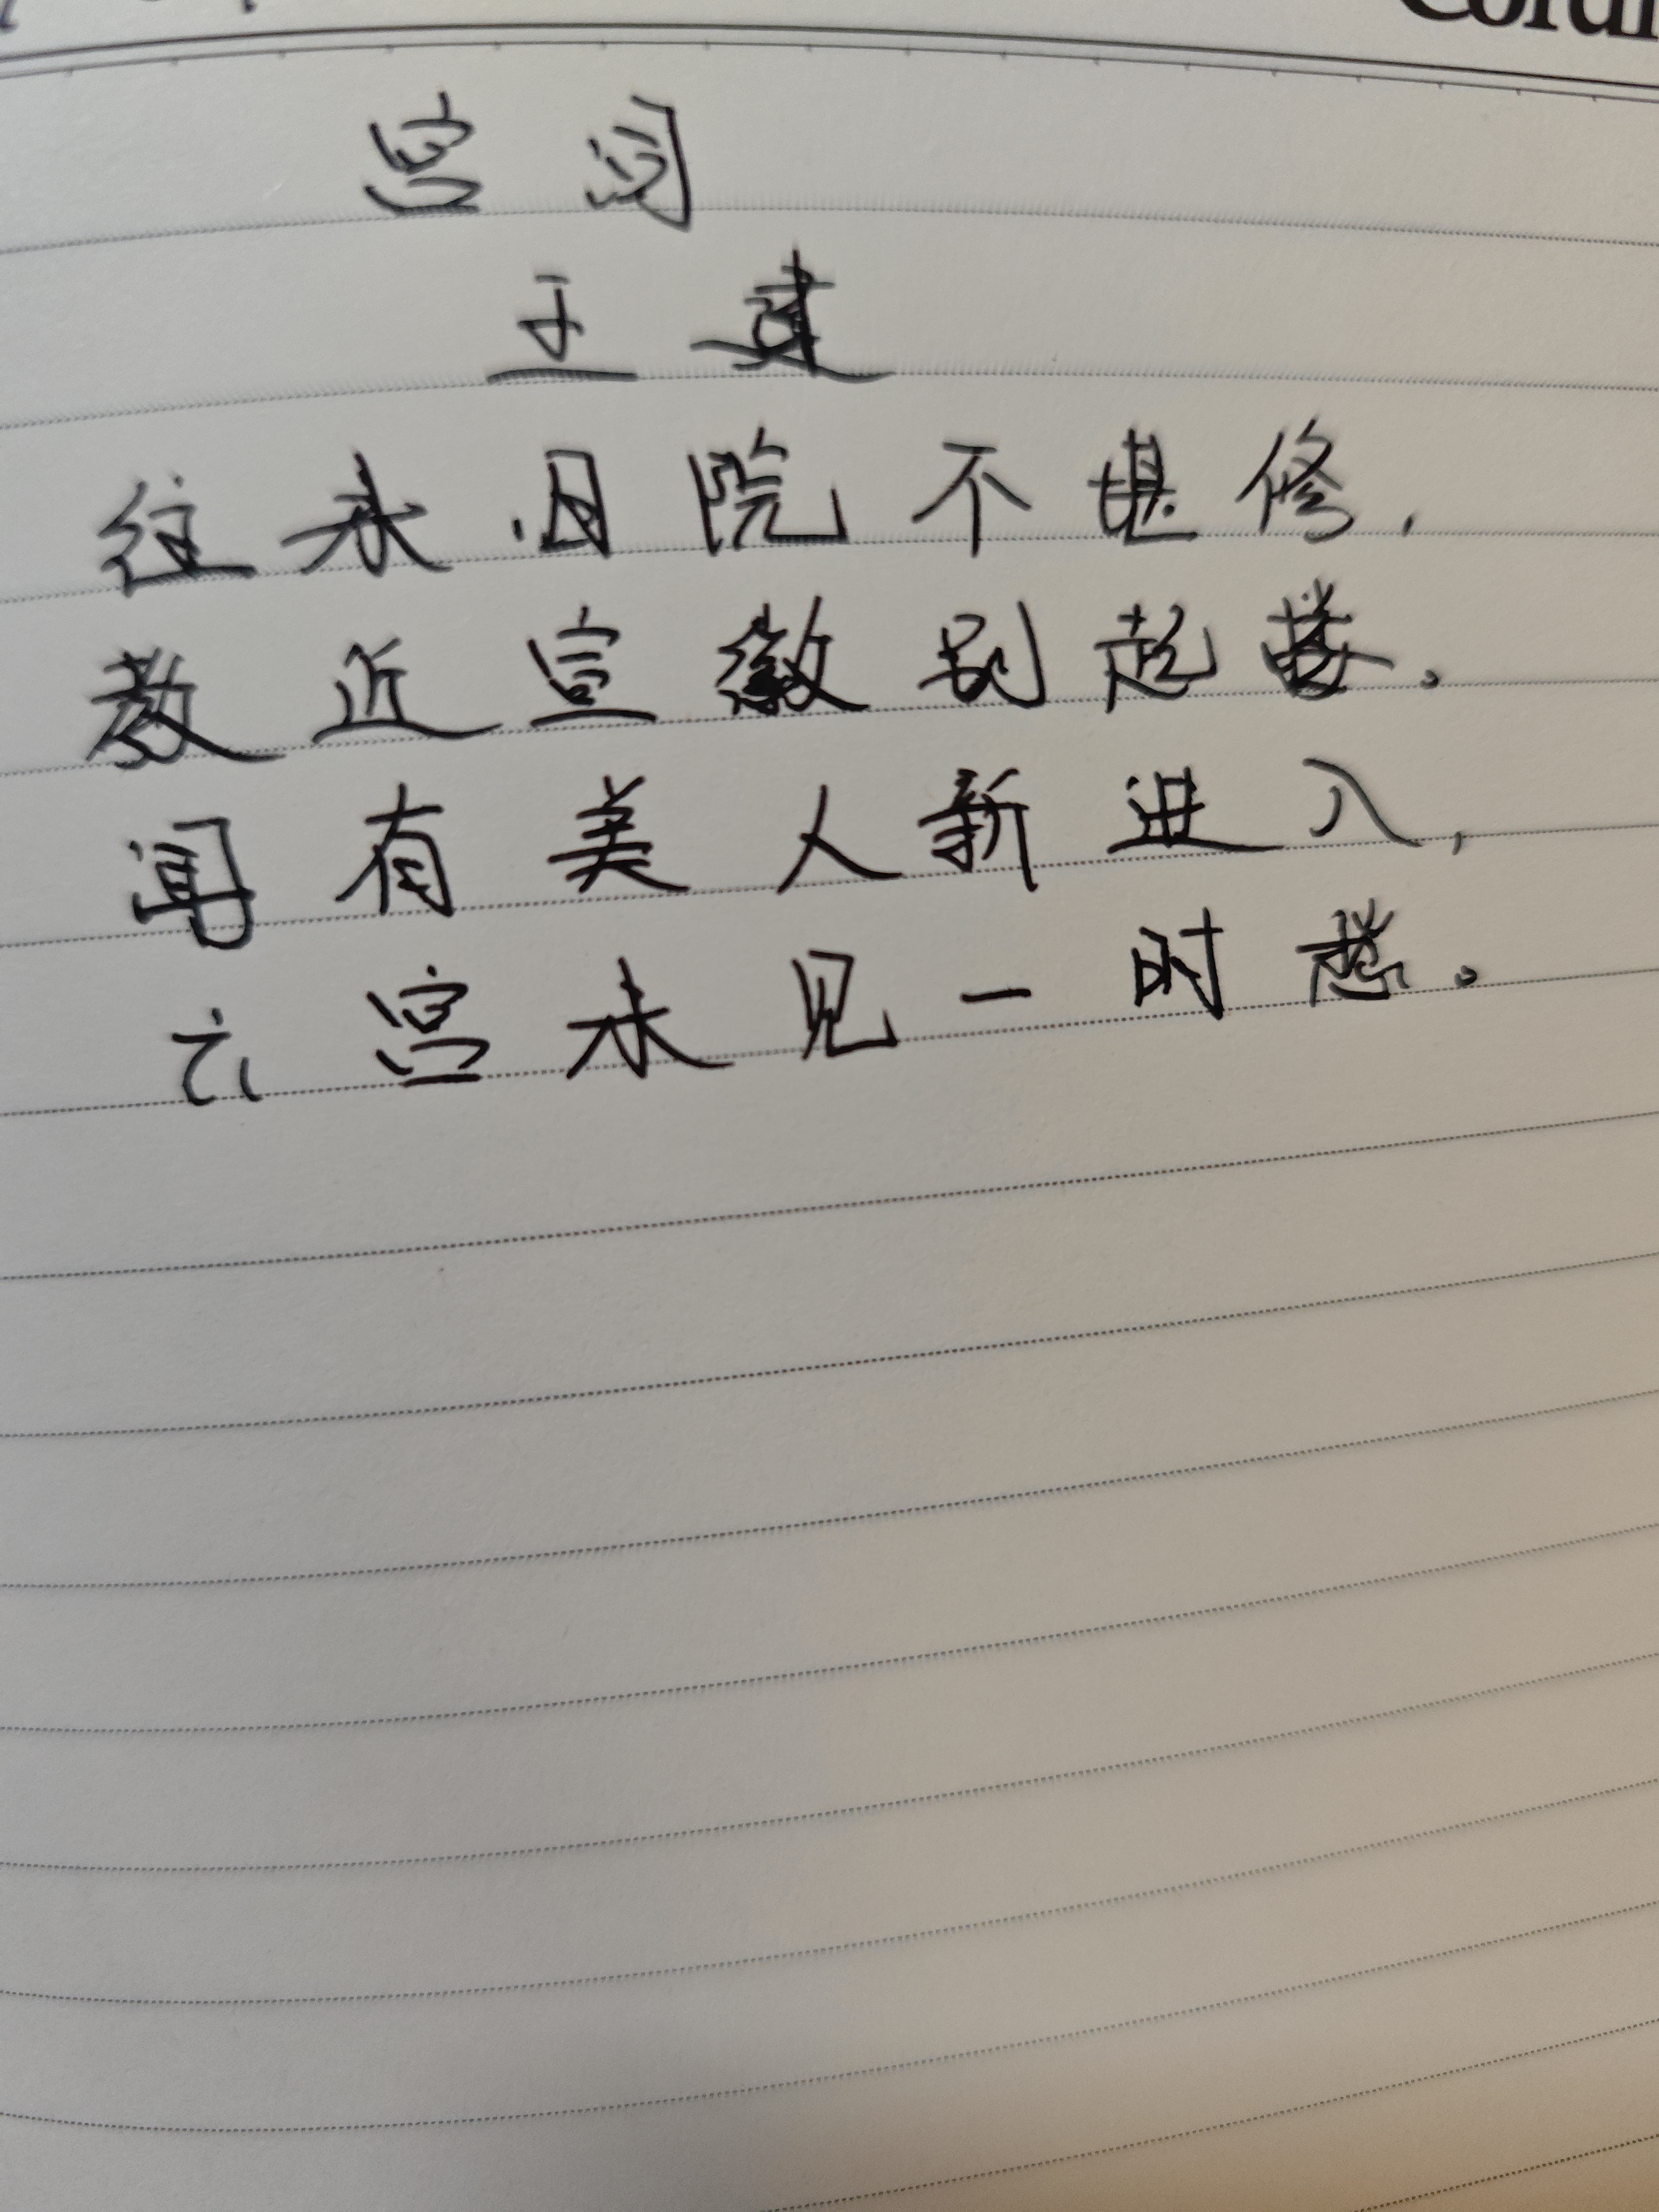 宫词
王建
往来旧院不堪修,
教近宣徽别起楼。
闻有美人新进入,
六宫未见一时愁。